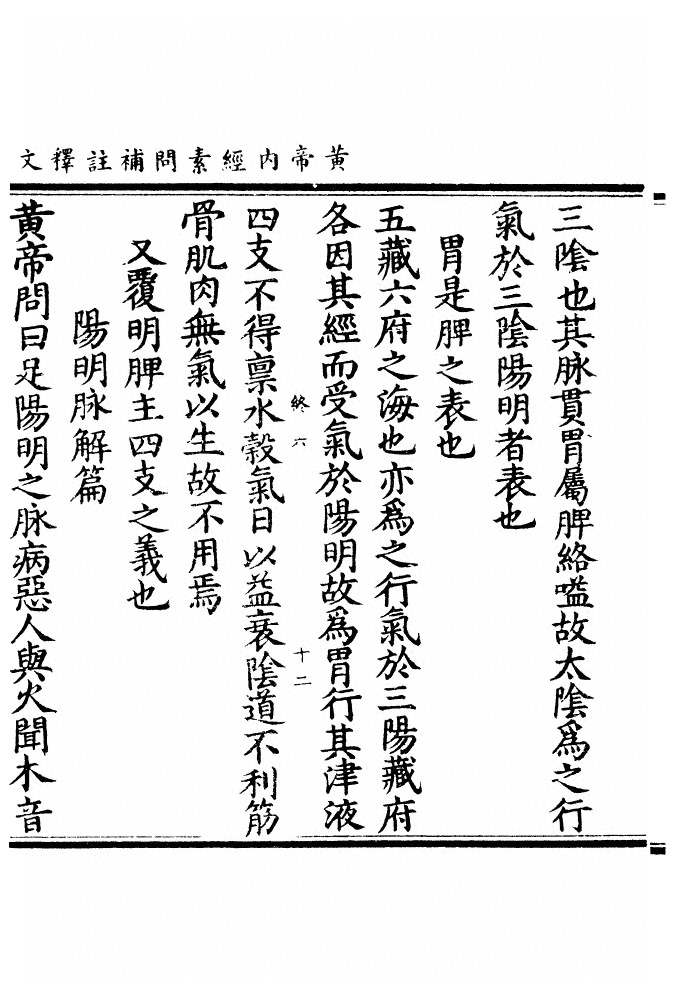 黄帝内經素問補註釋文
三陰也其脉貫胃屬脾絡嗌故太陰爲之行
氣於三陰陽明者表也
胃是脾之表也
五藏六府之海也亦爲之行氣於三陽藏府
各因其經而受氣於陽明故爲胃行其津液
四支不得禀水糓氣日以益衰陰道不利筋
終六 十二
骨肌肉無氣以生故不用焉
又覆明脾主四支之義也
陽明脉解篇
黄帝問曰足陽明之脉病惡人與火聞木音